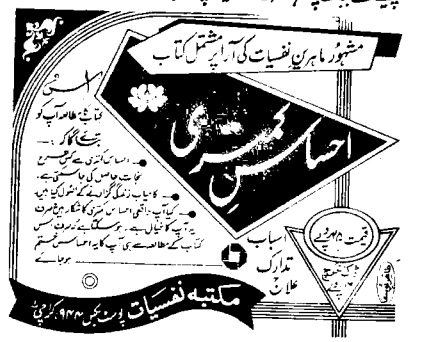 مشہور ماہرینِ نفسیات کی آرا پر مشتمل کتاب
احساسِ کمتری
اس
کتاب کا مطالعہ آپ کو
بتائے گا کہ :—
احساس کمتری سے کس طرح
نجات حاصل کی جا سکتی ہے۔
کامیاب زندگی گزارنے کے اصول کیا ہیں۔
کیا آپ واقعی احساس کمتری کا شکار ہیں یا صرف
یہ آپ کا خیال ہے۔ ہو سکتا ہے صرف اس
کتاب کے مطالعہ سے ہی آپ کا یہ احساس ختم
ہو جائے
اسباب
تدارک
علاج
قیمت روپے
ڈاک خرچ
روپے
مکتبہ نفسیات پوسٹ بکس ۹۴۴ کراچی